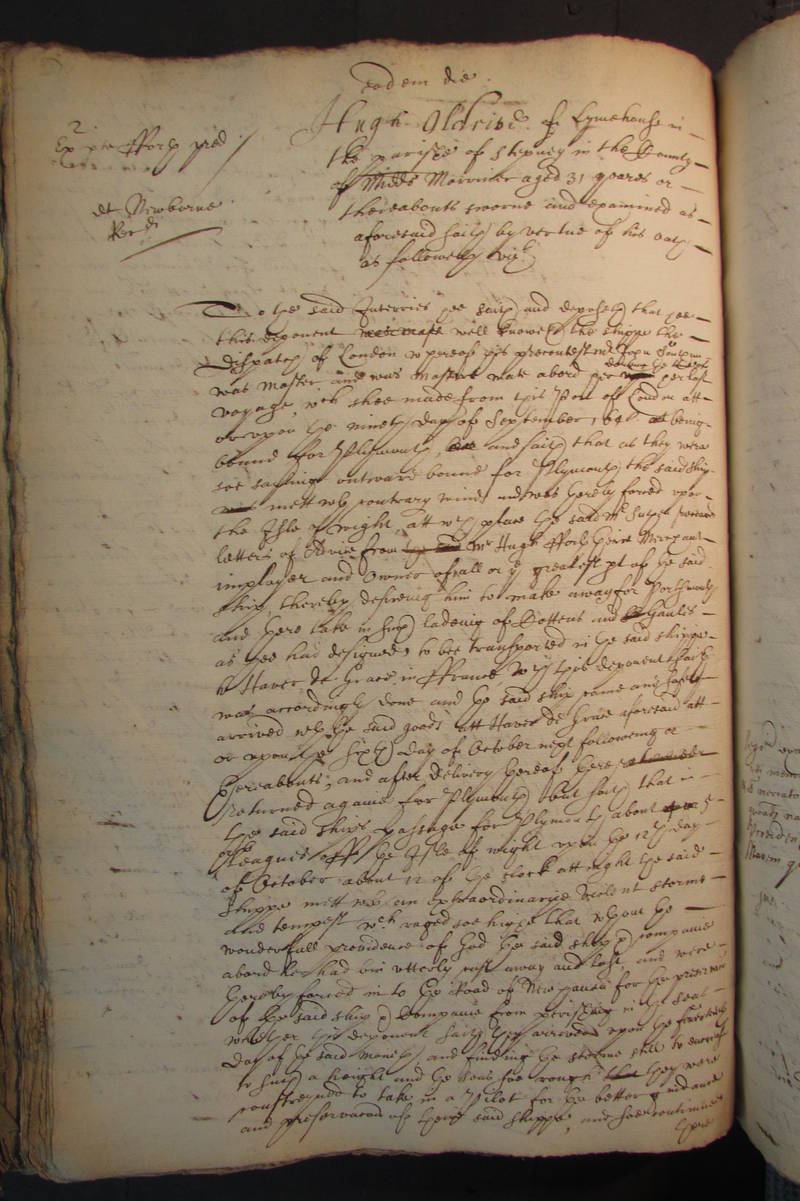 eodem die.
2
Ex pte ffoch pred
Hugh Oldrice of Lymehouse in
the parishe of Stepney in the County
of Midds Marriner aged 31 yeares or
thereabouts sworne and examined as
aforesaid saith by vertue of his oath
as followeth vizt
et Newborne
To the said Interries hee saith and deposeth that hee
this deponent well knoweth the shippe the
Dispatch of London whereof his precontest Mr John
was Master and was Masters mate abord her her last
voyage, wch shee made from this Port of London att
or upon the nineth day of September, 164 being
bound for Plymouth, and saith that as they were
soe sayling outward bound for Plymouth the said ship
mett wth contrary winds and was thereby forced upon
the Isle of Wight, att wch place the said Mr received
letters of Advice from Mr Hugh ffoch theire Merchant
imployer and Owner of all or ye greatest pt of the said
ship, thereby desireing him to make away for Portsmouth
and there take in his ladeing of Cottens and
as hee had designed to bee transported in the said shippe
to Haver de Grace in ffrance, wch this deponent saith
was accordingly done and the said ship came and safely
arrived wth the said goods att Haver de Grace aforesaid att
or upon the sixth day of October next following or
thereabouts, and after delivery thereof there
returned againe for Plymouth but saith that in
the said ships passage for Plymouth about 5
leagues off the Isle of Wight upon the 12th day
of October about 12 of the clock att night the said
shippe mett wth an extraordinarie violent storme
and tempest wch raged soe high that wthout the
wonderfull providence of God the said ship & companie
abord her had bin utterly cast away and lost and were
thereby forced in to the Road of New haven for the
of the said ship & Companie from perishing in the seas
whether this deponent saith they arrived upon the
day of the said Moneth and finding the storme still to
to such a height and the seas soe rough they were
constreyned to take in a Pilot for the better guidance
and preservacon of there said shippe, and soe continued
there